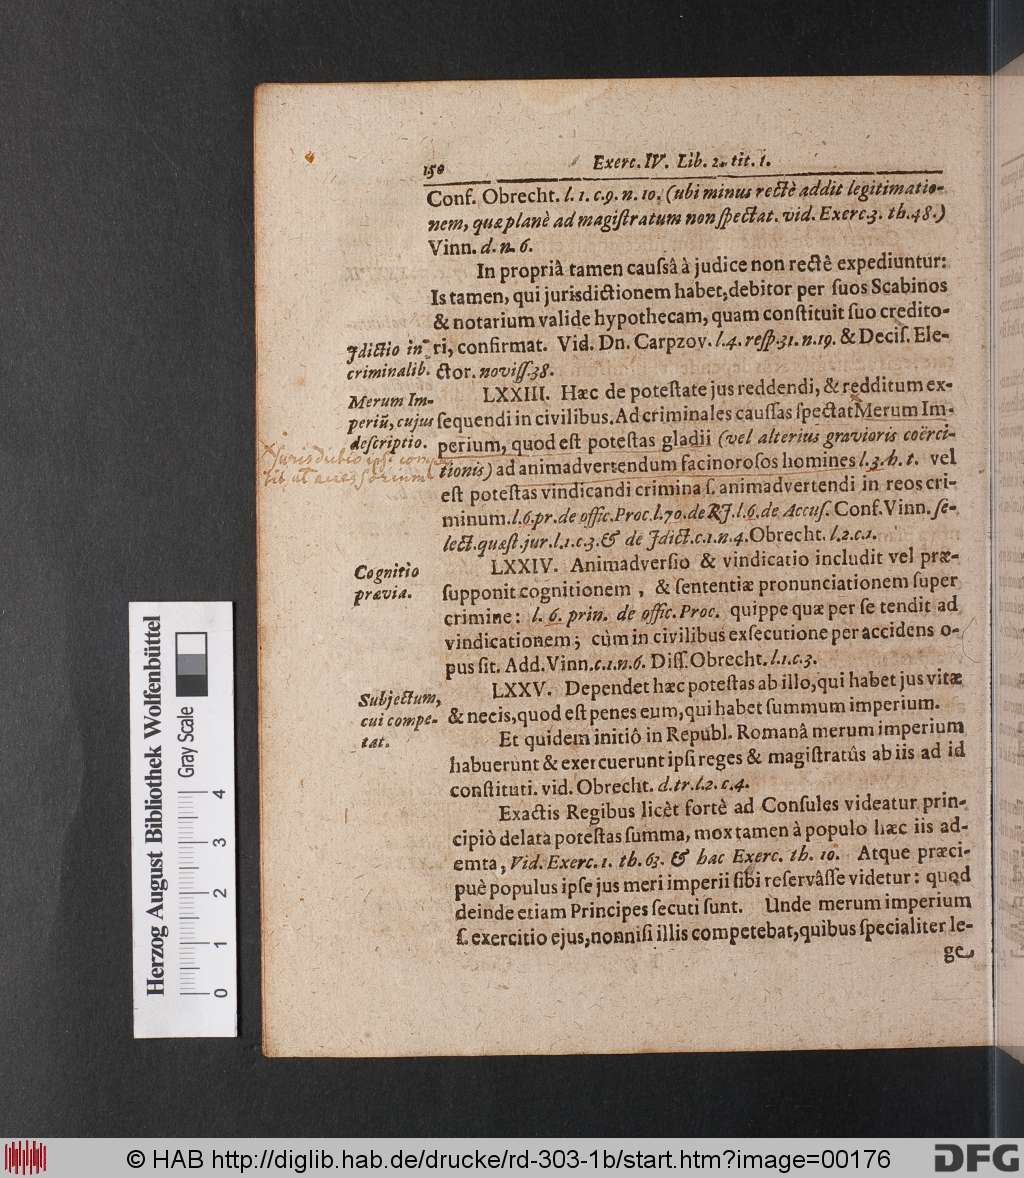 150 Exerc. IV. Lib. 2. tit. 1.
Conf. Obrecht. l. 1. c. 9. n. 10. (ubi minus rectè addit legitimatio-
nem, quæ planè ad magiſtratum non ſpectat. vid. Exerc. 3. th. 48.)
Vinn. d. n. 6.
In propriâ tamen cauſsâ à judice non rectê expediuntur:
Is tamen, qui jurisdictionem habet, debitor per ſuos Scabinos
& notarium valide hypothecam, quam conſtituit ſuo credito-
ri, confirmat. Vid. Dn. Carpzov. l. 4. reſp. 31. n. 19. & Deciſ. Ele-
ctor. noviſſ. 38.
Jdictio in
criminalib.
LXXIII. Hæc de poteſtate jus reddendi, & redditum ex-
ſequendi in civilibus. Ad criminales cauſſas ſpectat Merum Im-
perium, quod eſt poteſtas gladii (vel alterius gravioris coërci-
tionis) ad animadvertendum facinoroſos homines l. 3. h. t. vel
eſt poteſtas vindicandi crimina ſ. animadvertendi in reos cri-
minum. l. 6. pr. de offic. Proc. l. 70. de RJ. l. 6. de Accuſ. Conf. Vinn. ſe-
lect. quæſt. jur. l. 1. c. 3. & de Jdict. c. 1. n. 4. Obrecht. l. 2. c. 1.
Merum Im-
periũ, cujus
deſcriptio.
Jurisdictio ipsi
LXXIV. Animadverſio & vindicatio includit vel præ-
ſupponit cognitionem, & ſententiæ pronunciationem ſuper
crimine: l. 6. prin. de offic. Proc. quippe quæ per ſe tendit ad
vindicationem; cùm in civilibus exſecutione per accidens o-
pus ſit. Add. Vinn. c. 1. n. 6. Diſſ. Obrecht. l. 1. c. 3.
Cognitio
prævia.
LXXV. Dependet hæc poteſtas ab illo, qui habet jus vitæ
& necis, quod eſt penes eum, qui habet ſummum imperium.
Subjectum,
cui compe-
tat.
Et quidem initiô in Republ. Romanâ merum imperium
habuerunt & exercuerunt ipſi reges & magiſtratûs ab iis ad id
conſtituti. vid. Obrecht. d. tr. l. 2. c. 4.
Exactis Regibus licèt fortè ad Conſules videatur prin-
cipiò delata poteſtas ſumma, mox tamen à populo hæc iis ad-
emta, Vid. Exerc. 1. th. 63. & hac Exerc. th. 10. Atque præci-
puè populus ipſe jus meri imperii ſibi reſervâſſe videtur: quod
deinde etiam Principes ſecuti ſunt. Unde merum imperium
ſ. exercitio ejus, nonniſi illis competebat, quibus ſpecialiter le-
ge
Herzog August Bibliothek Wolfenbüttel
Gray Scale
0 1 2 3 4
© HAB http://diglib.hab.de/drucke/rd-303-1b/start.htm?image=00176
DFG